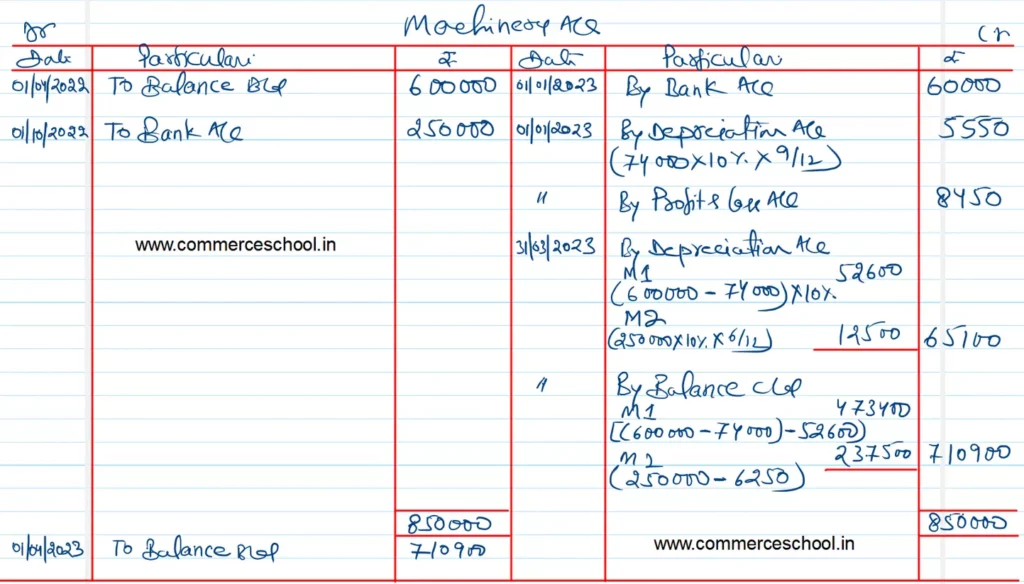 Machinery A/c
Dr Cr
Date Particulars ₹ Date Particulars ₹
01/04/2022 To Balance B/d 600000 01/01/2023 By Bank A/c 60000
01/10/2022 To Bank A/c 250000 01/01/2023 By Depreciation A/c 5550
(74000X10%.X9/12)
" By Profit & Loss A/c 8450
www.commerceschool.in 31/03/2023 By Depreciation A/c
M1 52600
(600000-74000)X10%.
M2
(250000X10%.X6/12) 12500 65100
" By Balance C/d
M1 473400
[(600000-74000)-52600)
M2 237500 710900
(250000-6250)
850000 850000
01/04/2023 To Balance B/d 710900 www.commerceschool.in